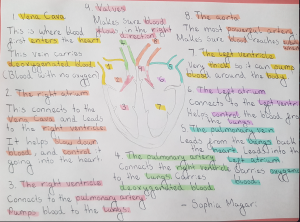 1. Vena Cava
This is where blood
first enters the heart.
This vein carries
deoxygenated blood
(Blood with no oxygen)
2. The right atrium
This connects to the
Vena Cava and leads
to the right ventricle.
It helps
blood, and control it
going into the heart.
3. The right ventricle
Connects to the pulmonary artery
Pumps blood to the lungs.
9. Valves
Makes sure blood
flows in the right
direction
4. The pulmonary artery
Connects the right ventricle
to the lungs. Carries
deoxygenated blood.
8. The aorta
The most powerful artery
Makes sure blood reaches
7. The left ventricle
Very thick so it can pump
blood around the body.
6. The left atrium
Connects to the left ventricle
Helps control the blood from
lungs.
5. The pulmonary vein
Leads from the lungs back
the heart. Leads into the
left atrium
Carries oxygenated
blood.
- Sophia Mayar.
1
2
3
4
5
6
7
8